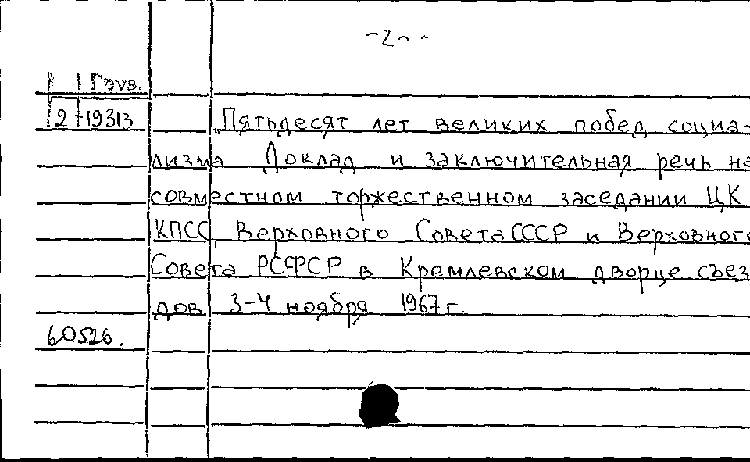 -2-
Гауз.
2-19313
Пятьдесят лет великих побед социа-
лизма Доклад и заключительная речь на
совместном торжественном заседании ЦК
КПСС, Верховного Совета СССР и Верховного
Совета РСФСР в Кремлевском дворце съез
дов 3-4 ноября 1967 г.
60526.